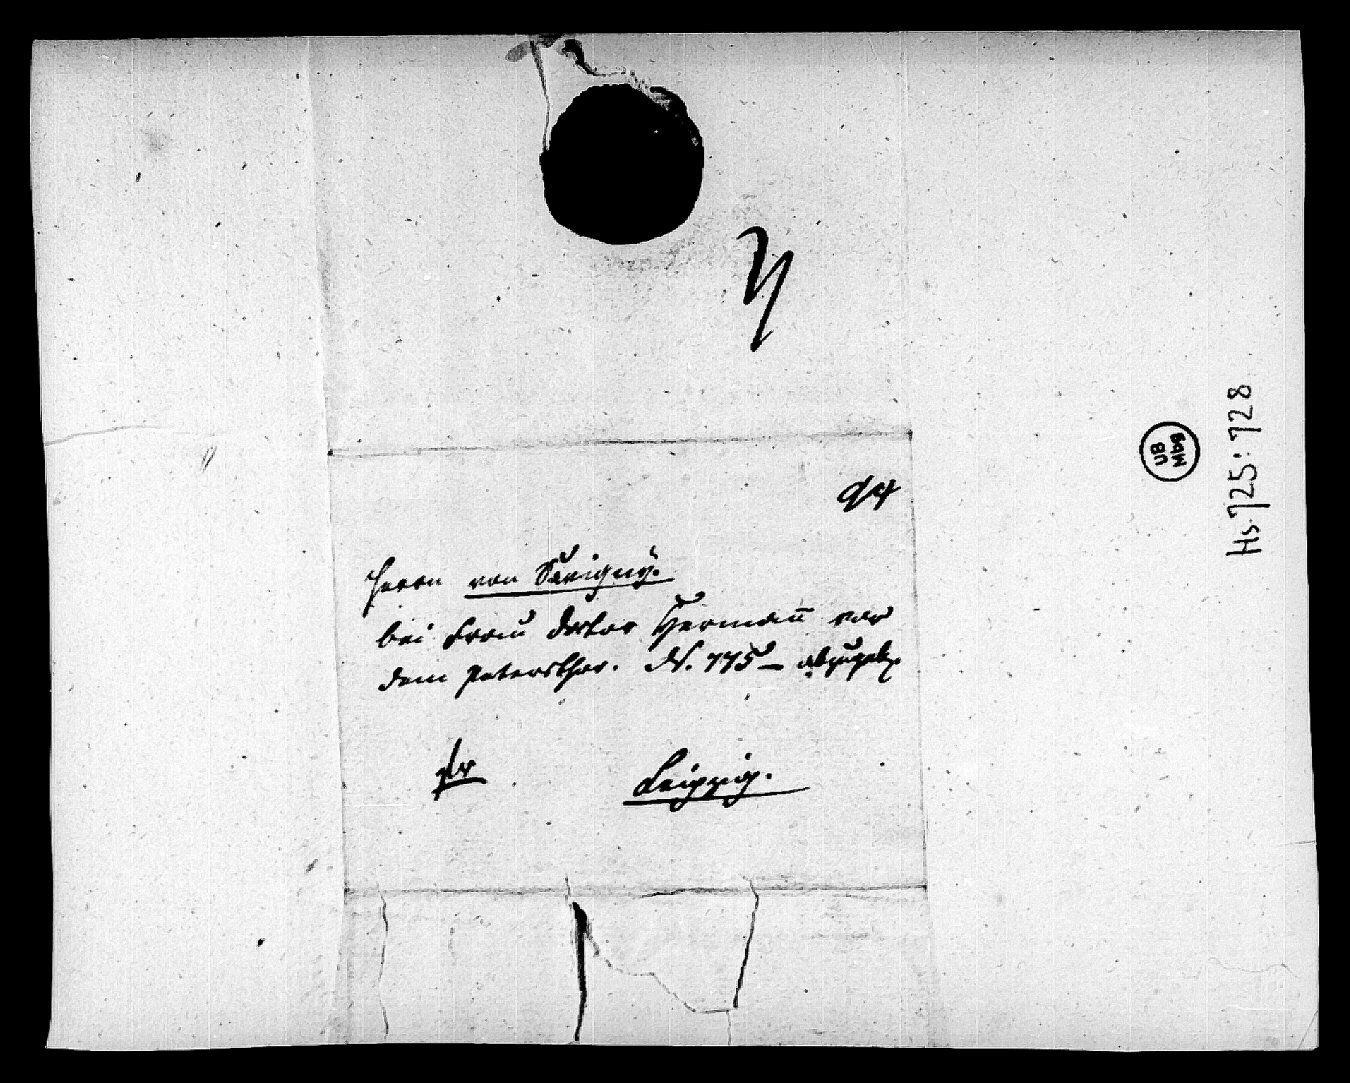 94
Herrn von Savigny.
bei Frau Doctor Hermann vor
dem Petersthor. N. 775 – abzugeb
fr
Leipzig.
UB
Mbg
Hs. 725:728